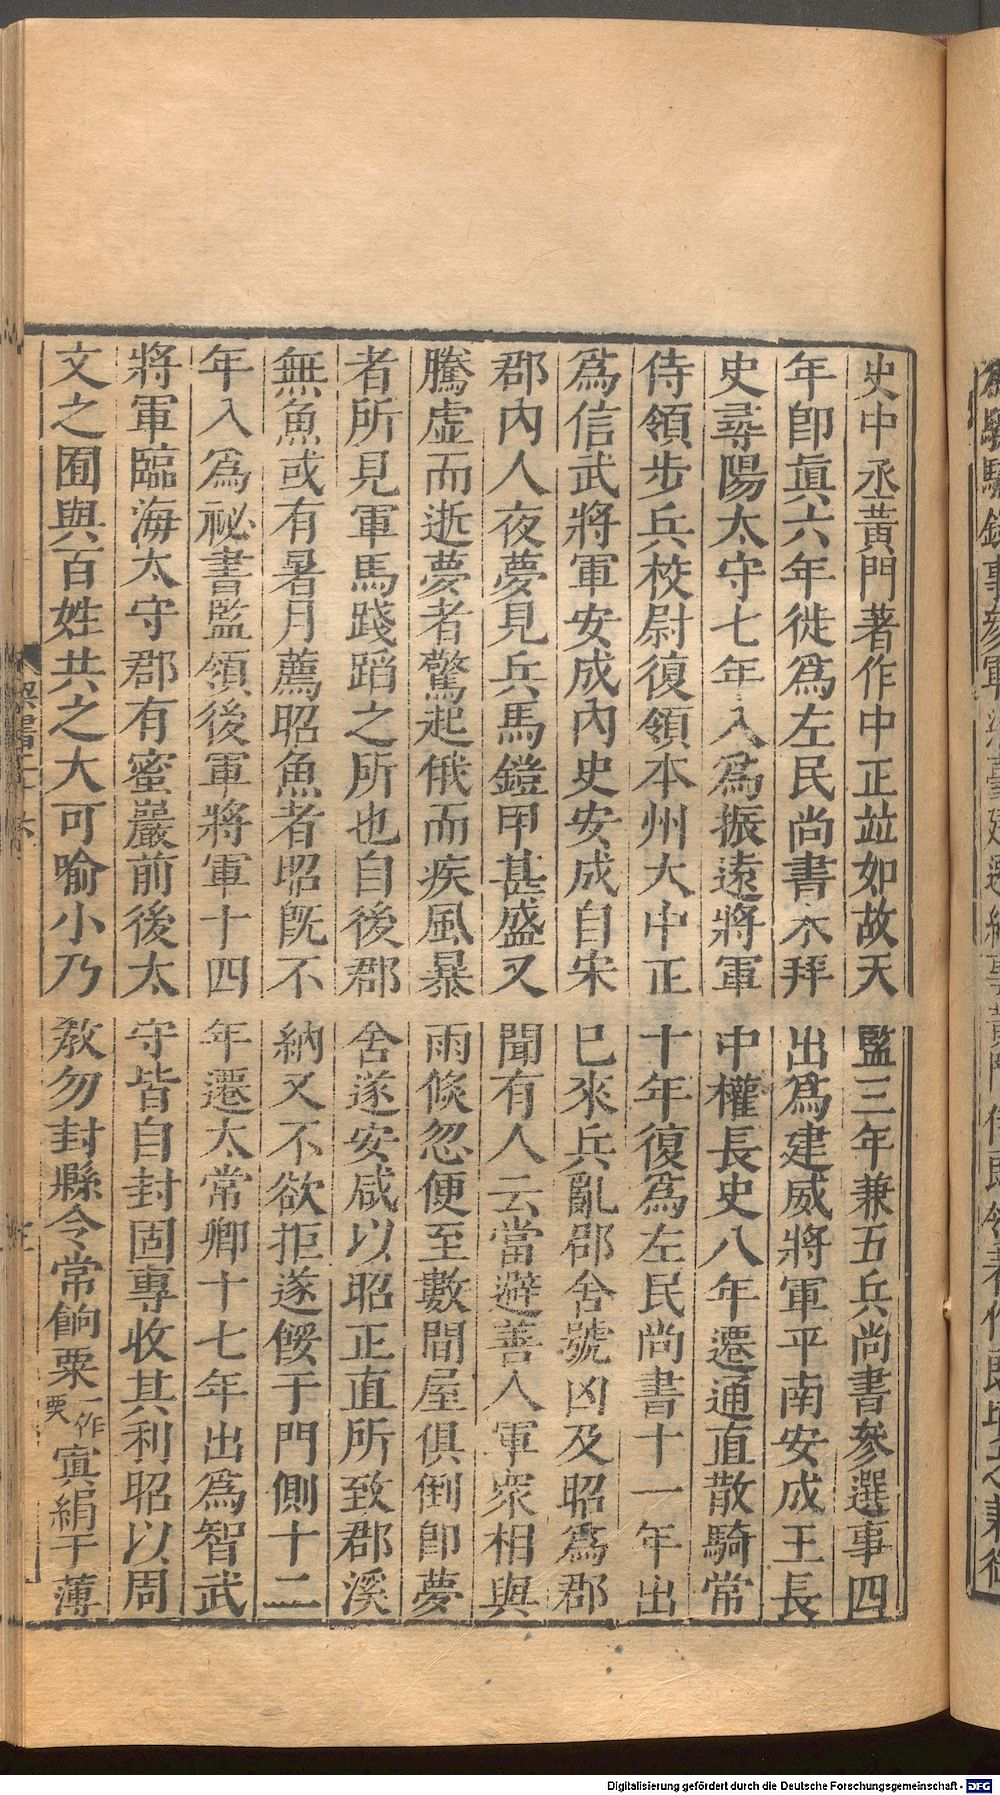 史中丞黃門著作中正竝如故天監三年兼五兵尚書參選事四
年卽眞六年徙爲左民尚書未拜出爲建威將軍平南安成王長
史尋陽太守七年入爲振遠將軍中權長史八年遷通直散騎常
侍領步兵校尉復領本州大中正十年復爲左民尚書十一年出
爲信武將軍安成內史安成自宋巳來兵亂郡舍號凶及昭爲郡
郡內人夜夢見兵馬鎧甲甚盛又聞有人云當避善人軍衆相與
騰虛而逝夢者驚起俄而疾風暴雨倐忽便至數間屋俱倒卽夢
者所見軍馬踐蹈之所也自後郡舍遂安咸以昭正直所致郡溪
無魚或有暑月薦昭魚者昭旣不納又不欲拒遂餒于門側十二
年入爲祕書監領後軍將軍十四年遷太常卿十七年出爲智武
將軍臨海太守郡有蜜巖前後太守皆自封固專收其利昭以周
文之囿與百姓共之大可喻小乃敎勿封縣令常餉粟一作栗寘絹于薄
Digitalisierung gefördert durch die Deutsche Forschungsgemeinschaft - DFG